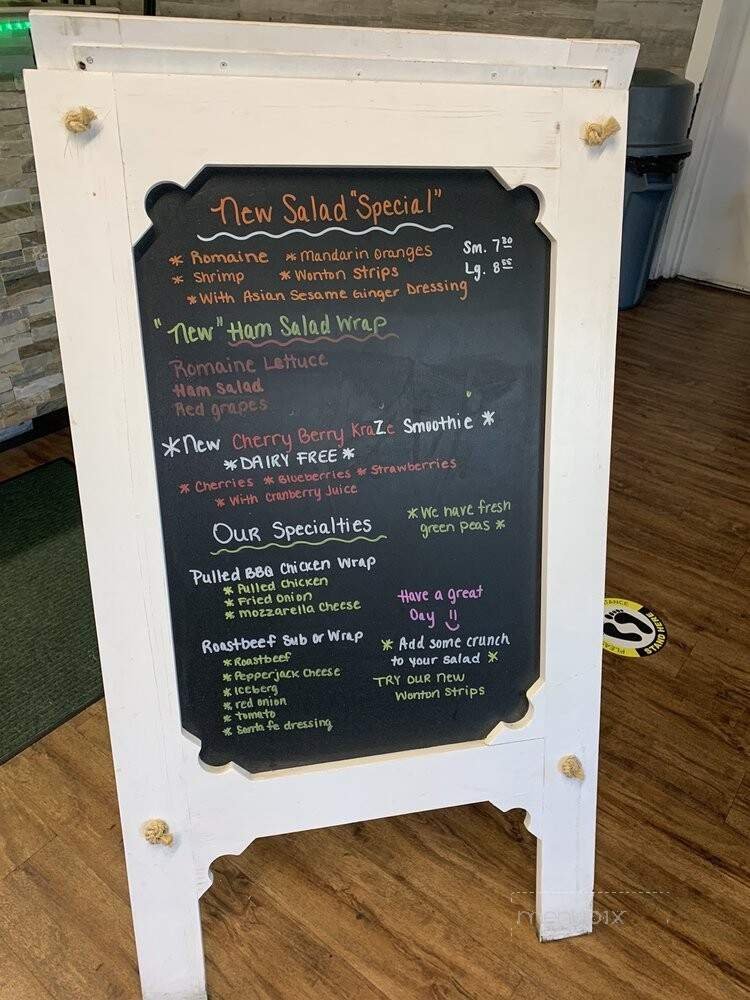 New Salad "Special"
* Romaine * Mandarin Oranges Sm. 7
* Shrimp * Wonton Strips Lg. 8
* With Asian Sesame Ginger Dressing
"New" Ham Salad Wrap
Romaine Lettuce
Ham Salad
Red grapes
* New Cherry Berry KraZe Smoothie *
* DAIRY FREE *
* Cherries * Blueberries * Strawberries
* With Cranberry Juice
Our Specialties
* We have fresh
green peas *
Pulled BBQ Chicken Wrap
* Pulled Chicken
* Fried Onion
* Mozzarella Cheese
Have a great
Day !!
Roastbeef Sub or Wrap
* Roastbeef
* Pepperjack Cheese
* Iceberg
* red onion
* tomato
* Santa fe dressing
* Add some crunch
to your salad *
TRY OUR New
Wonton Strips
STAND HERE
menupix